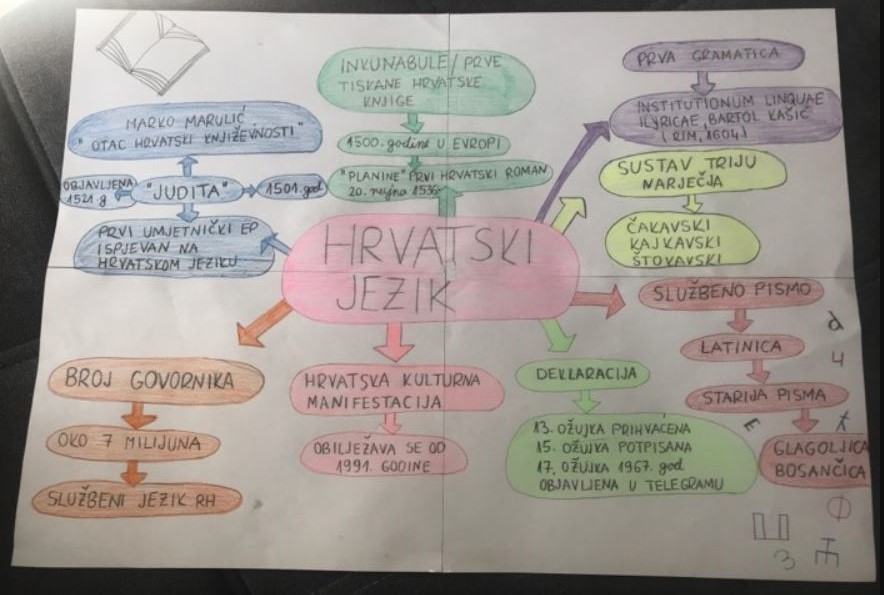 HRVATSKI
JEZIK
INKUNABULE/PRVE
TISKANE HRVATSKE
KNJIGE
1500. godine U EVROPI
"PLANINE" PRVI HRVATSKI ROMAN
20. rujna 1536.
PRVA GRAMATICA
INSTITUTIONUM LINQUAE
ILYRICAE, BARTOL KAŠIĆ
(RIM, 1604)
SUSTAV TRIJU
NARJEČJA
ČAKAVSKI
KAJKAVSKI
ŠTOKAVSKI
SLUŽBENO PISMO
LATINICA
STARIJA PISMA
GLAGOLJICA
BOSANČICA
DEKLARACIJA
13. OŽUJKA PRIHVAĆENA
15. OŽUJKA POTPISANA
17. OŽUJKA 1967. god
OBJAVLJENA U TELEGRAMU
HRVATSKA KULTURNA
MANIFESTACIJA
OBILJEŽAVA SE OD
1991. GODINE
BROJ GOVORNIKA
OKO 7 MILIJUNA
SLUŽBENI JEZIK RH
MARKO MARULIĆ
"OTAC HRVATSKI KNJIŽEVNOSTI"
OBJAVLJENA
1521.g
"JUDITA"
1501.god
PRVI UMJETNIČKI EP
ISPJEVAN NA
HRVATSKOM JEZIKU